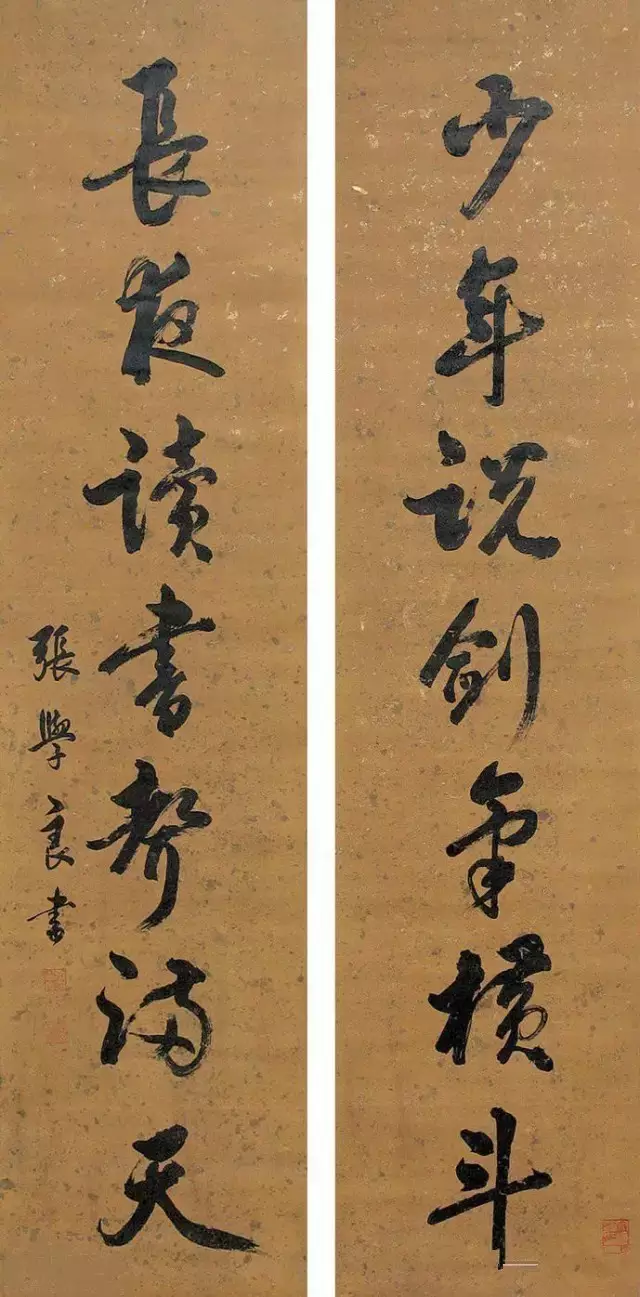 少年說劍氣橫斗
長夜讀書聲滿天
張學良書